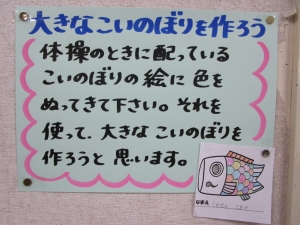 大きなこいのぼりを作ろう
体操のときに配っている
こいのぼりの絵に色を
ぬってきて下さい。それを
使って、大きなこいのぼりを
作ろうと思います。
なまえ